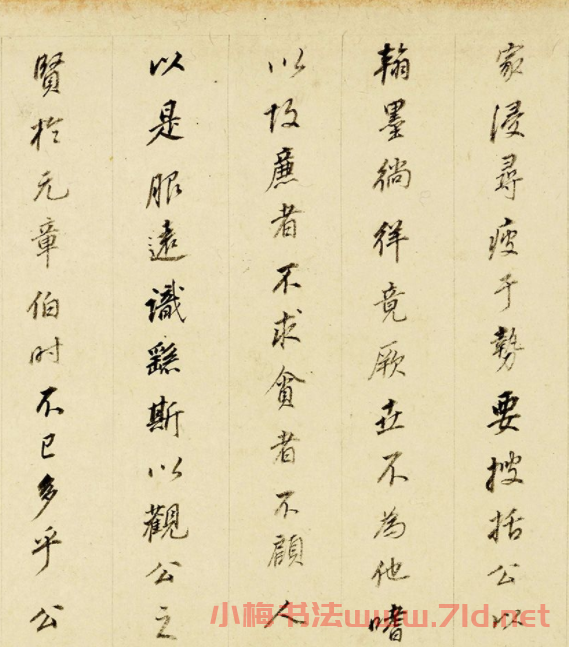 家浸尋疲于勢要搜括公以
翰墨徜徉竟厥世不為他嗜
以故廉者不求貪者不顧人
以是服遠識繇斯以觀公之
賢於元章伯時不已多乎公
小梅书法www.7ld.net